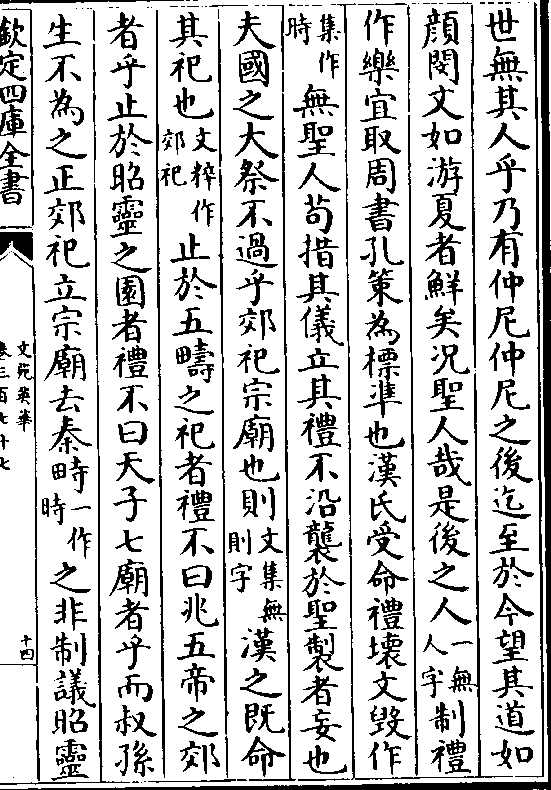 世無其人乎乃有仲尼仲尼之後迄至於今望其道如
顔閔文如游夏者鮮矣况聖人哉是後之人一無人字制禮
作樂宜取周書孔策為標準也漢氏受命禮壞文毁作
集作時無聖人苟措其儀立其禮不沿襲於聖製者妄也
夫國之大祭不過乎郊祀宗廟也則文集無則字漢之既命
其祀也文粹作郊祀止於五疇之祀者禮不曰兆五帝之郊
者乎止於昭靈之園者禮不曰天子七廟者乎而叔孫
生不為之正郊祀立宗廟去秦畤一作時之非制議昭靈
欽定四庫全書
文苑英華
卷三百七十七
十四